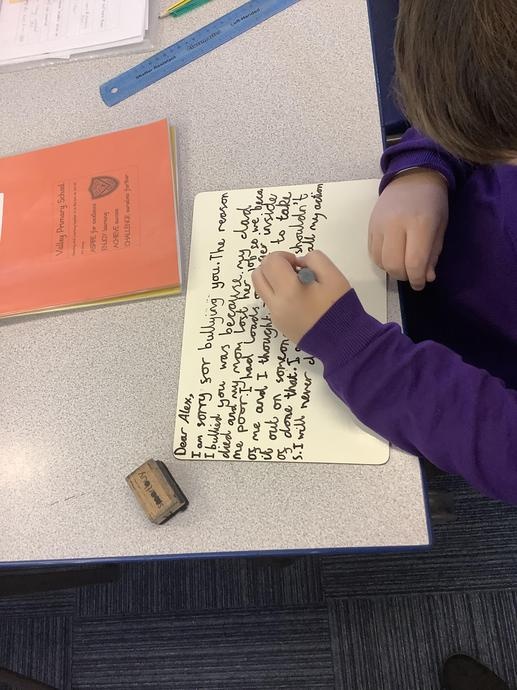 Dear Alex,
I am sorry sor bullying you. The reason
I bullied you was because my dad
died and my mom lost her job so we beca
me poor. I had loads o inside
of me and I thought to take
it out on someon shouldn't
of done that. I all my action
s. I will never d
Valley Primary School
ASPIRE for excellence
ENJOY learning
ACHIEVE success
CHALLENGE ourselves further
Shatter Resistant
Left-Handed